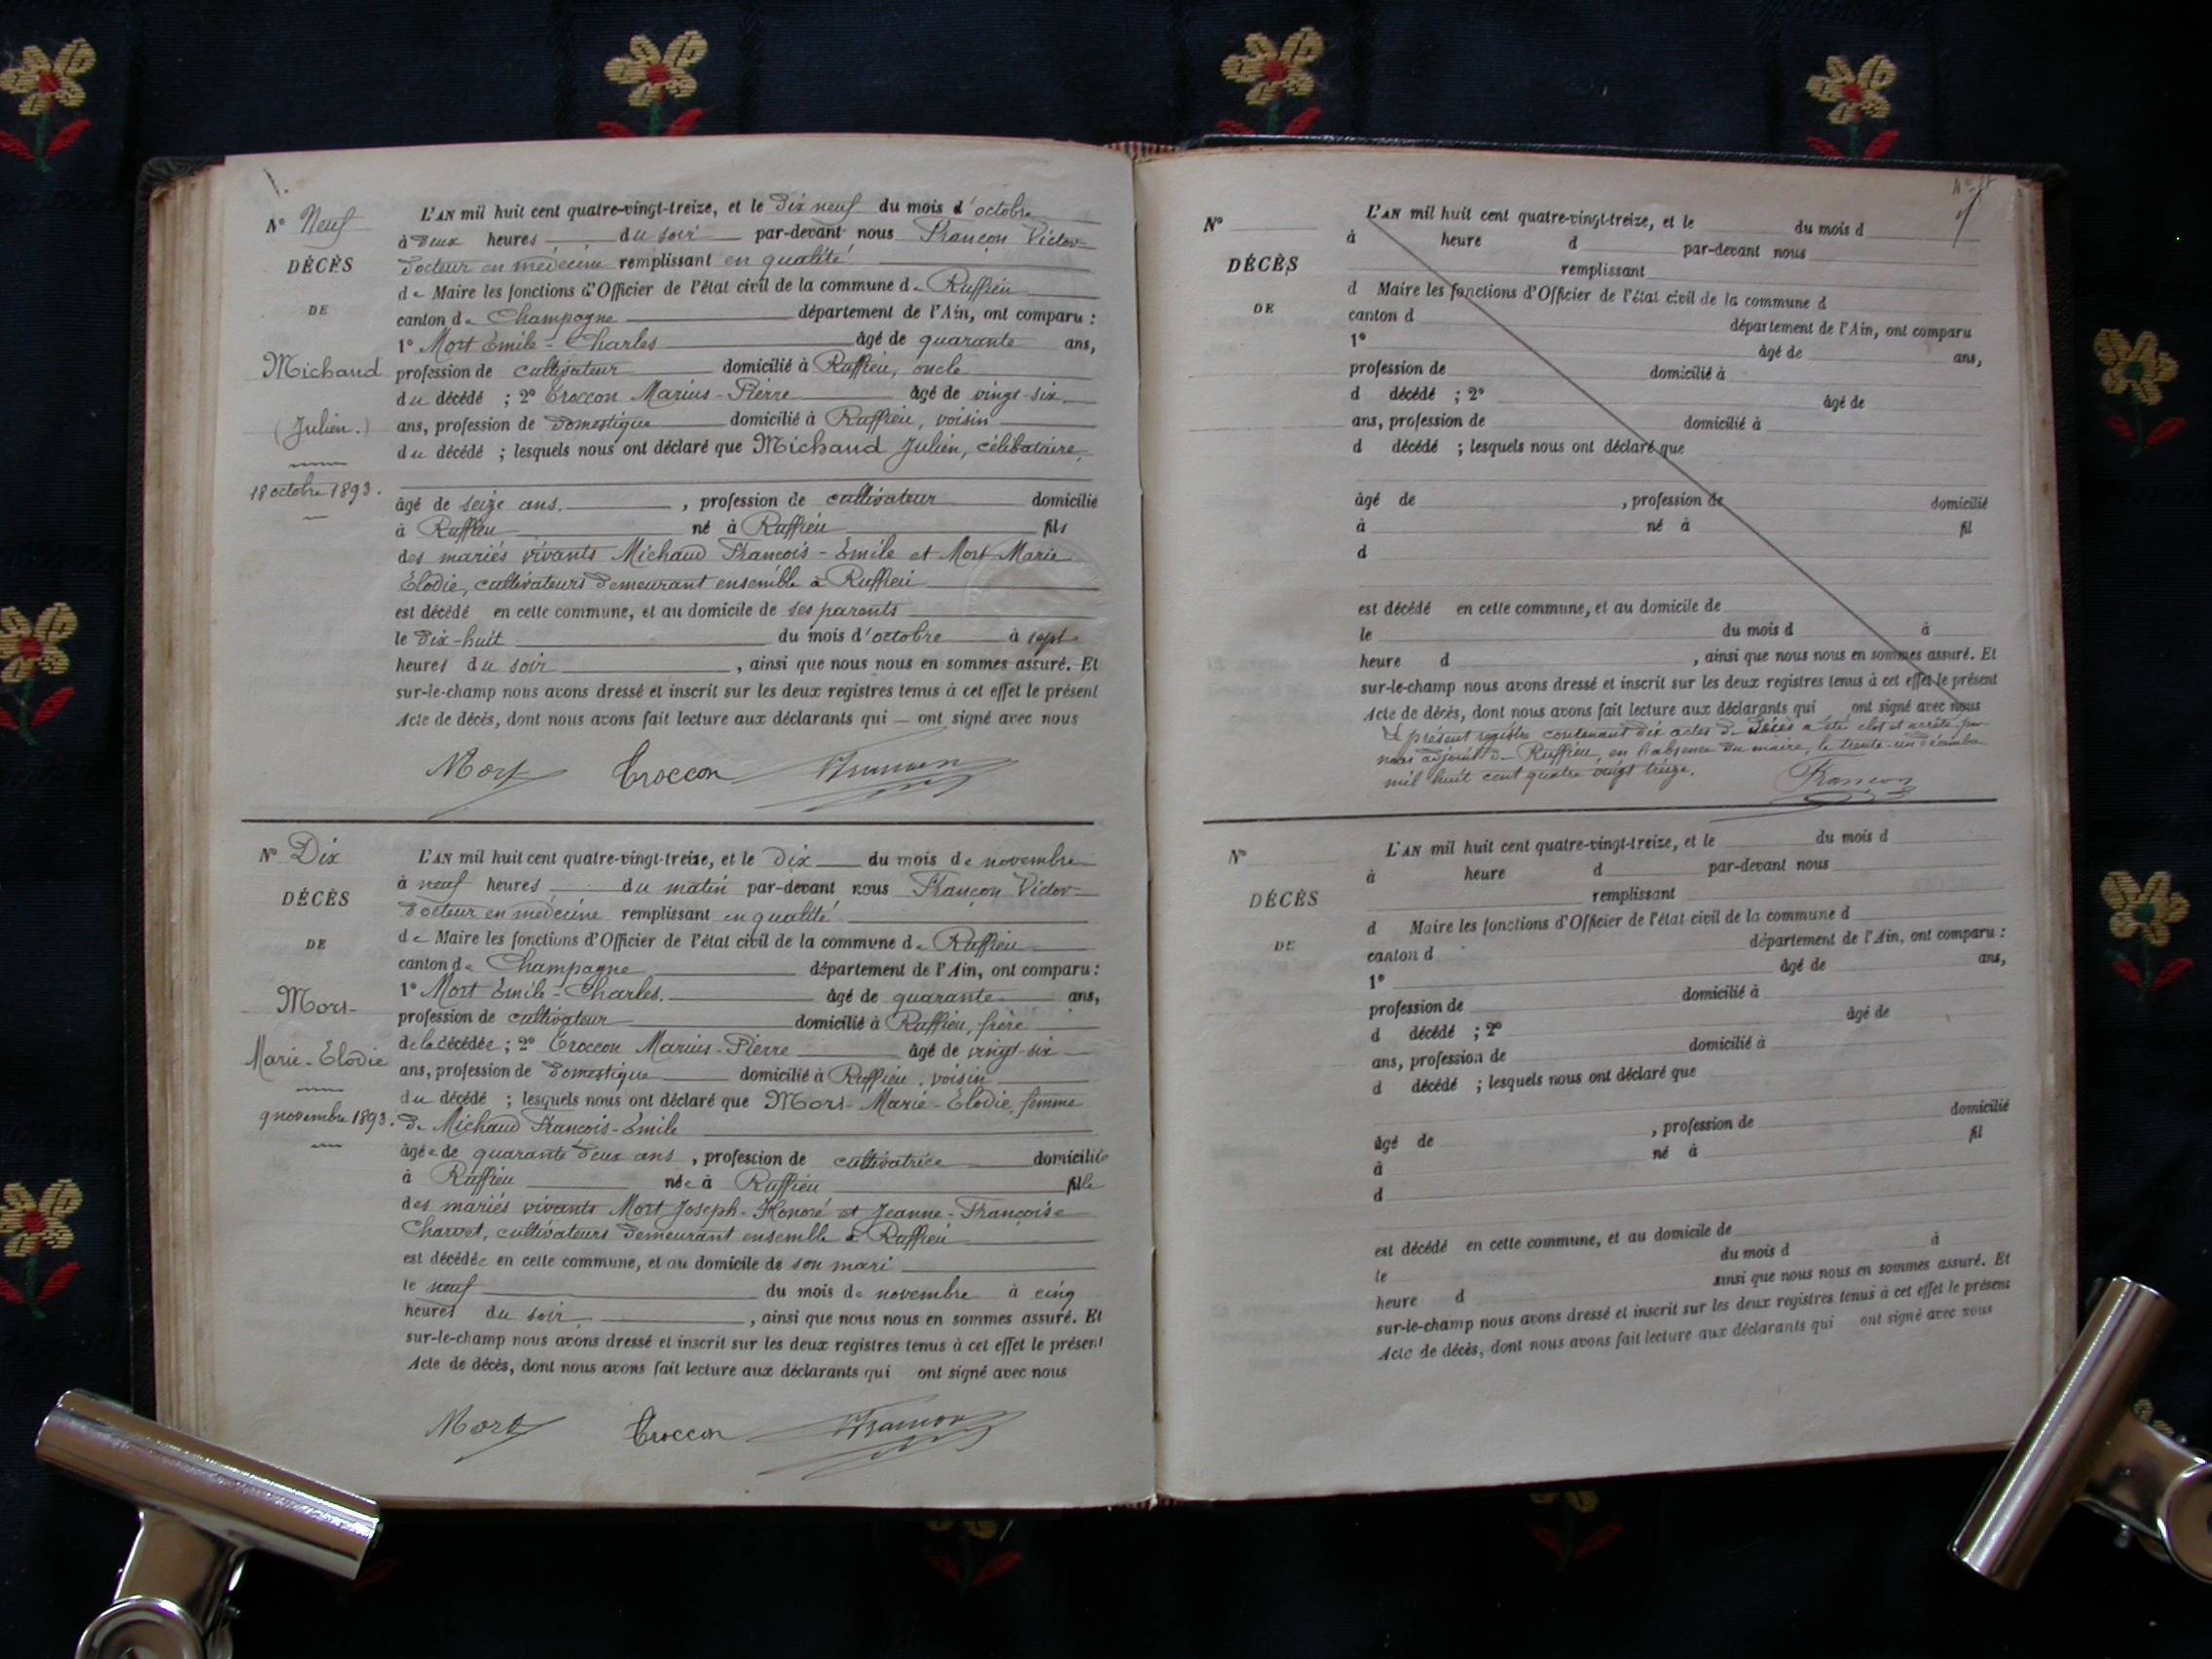 N° Neuf
DÉCÈS
DE
Michaud
(Julien.)
18 octobre 1893.
L'AN mil huit cent quatre-vingt-treize, et le dix neuf du mois d'octobre
à deux heures du soir par-devant nous Françon Victor
docteur en médecine remplissant en qualité
de Maire les fonctions d'Officier de l'état civil de la commune de Ruffieu
canton de Champagne département de l'Ain, ont comparu :
1° Mort Emile-Charles âgé de quarante ans,
profession de cultivateur domicilié à Ruffieu, oncle
du décédé ; 2° Troccon Marius-Pierre âgé de vingt-six
ans, profession de domestique domicilié à Ruffieu, voisin
du décédé ; lesquels nous ont déclaré que Michaud Julien, célibataire,
âgé de seize ans, profession de cultivateur domicilié
à Ruffieu né à Ruffieu fils
des mariés vivants Michaud François-Emile et Mort Marie
Elodie, cultivateurs demeurant ensemble à Ruffieu
est décédé en cette commune, et au domicile de ses parents
le dix-huit du mois d'octobre à sept
heures du soir, ainsi que nous nous en sommes assuré. Et
sur-le-champ nous avons dressé et inscrit sur les deux registres tenus à cet effet le présent
Acte de décès, dont nous avons fait lecture aux déclarants qui — ont signé avec nous
Mort Troccon Françon
N° Dix
DÉCÈS
DE
Mort
Marie-Elodie
9 novembre 1893.
L'AN mil huit cent quatre-vingt-treize, et le dix du mois de novembre
à neuf heures du matin par-devant nous Françon Victor
docteur en médecine remplissant en qualité
de Maire les fonctions d'Officier de l'état civil de la commune de Ruffieu
canton de Champagne département de l'Ain, ont comparu :
1° Mort Emile-Charles. âgé de quarante ans,
profession de cultivateur domicilié à Ruffieu, frère
de la décédée ; 2° Troccon Marius-Pierre âgé de vingt-six
ans, profession de domestique domicilié à Ruffieu, voisin
du décédé ; lesquels nous ont déclaré que Mort Marie-Elodie, femme
de Michaud François-Emile
âgée de quarante deux ans, profession de cultivatrice domiciliée
à Ruffieu née à Ruffieu fille
des mariés vivants Mort Joseph-Honoré et Jeanne-Françoise
Charvet, cultivateurs demeurant ensemble à Ruffieu
est décédée en cette commune, et au domicile de son mari
le neuf du mois de novembre à cinq
heures du soir, ainsi que nous nous en sommes assuré. Et
sur-le-champ nous avons dressé et inscrit sur les deux registres tenus à cet effet le présent
Acte de décès, dont nous avons fait lecture aux déclarants qui ont signé avec nous
Mort Troccon Françon
N°
DÉCÈS
DE
L'AN mil huit cent quatre-vingt-treize, et le du mois d
à heure d par-devant nous
remplissant
d Maire les fonctions d'Officier de l'état civil de la commune d
canton d département de l'Ain, ont comparu
1° âgé de ans,
profession de domicilié à
d décédé ; 2° âgé de
ans, profession de domicilié à
d décédé ; lesquels nous ont déclaré que
âgé de , profession de domicilié
à né à fil
d
est décédé en cette commune, et au domicile de
le du mois d à
heure d , ainsi que nous nous en sommes assuré. Et
sur-le-champ nous avons dressé et inscrit sur les deux registres tenus à cet effet le présent
Acte de décès, dont nous avons fait lecture aux déclarants qui ont signé avec nous
Le présent registre contenant dix actes de décès a été clos et arrêté par
nous adjoint de Ruffieu, en l'absence du maire, le trente-un décembre
mil huit cent quatre vingt treize.
Françon
N°
DÉCÈS
DE
L'AN mil huit cent quatre-vingt-treize, et le du mois d
à heure d par-devant nous
remplissant
d Maire les fonctions d'Officier de l'état civil de la commune d
canton d département de l'Ain, ont comparu :
1° âgé de ans,
profession de domicilié à
d décédé ; 2° âgé de
ans, profession de domicilié à
d décédé ; lesquels nous ont déclaré que
âgé de , profession de domicilié
à né à fil
d
est décédé en cette commune, et au domicile de
le du mois d à
heure d ainsi que nous nous en sommes assuré. Et
sur-le-champ nous avons dressé et inscrit sur les deux registres tenus à cet effet le présent
Acte de décès, dont nous avons fait lecture aux déclarants qui ont signé avec nous